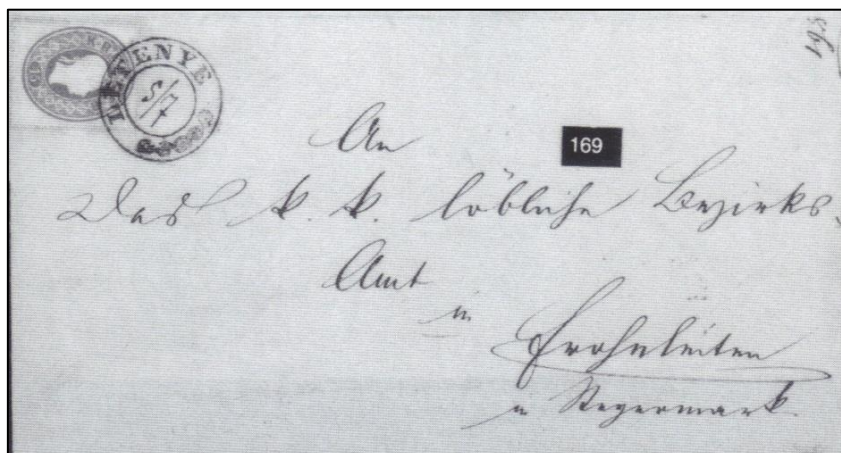 LETENYE
5/7
198
169
An
Das k. k. löbliche Bezirks-
Amt
in
Frohnleiten
in Steyermark.